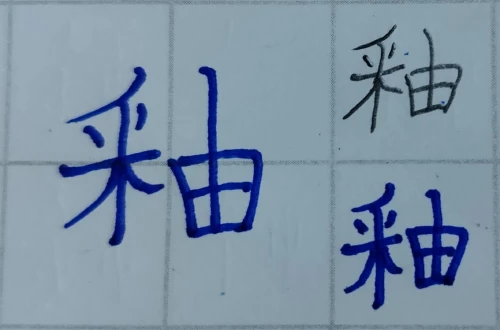 釉 釉
釉